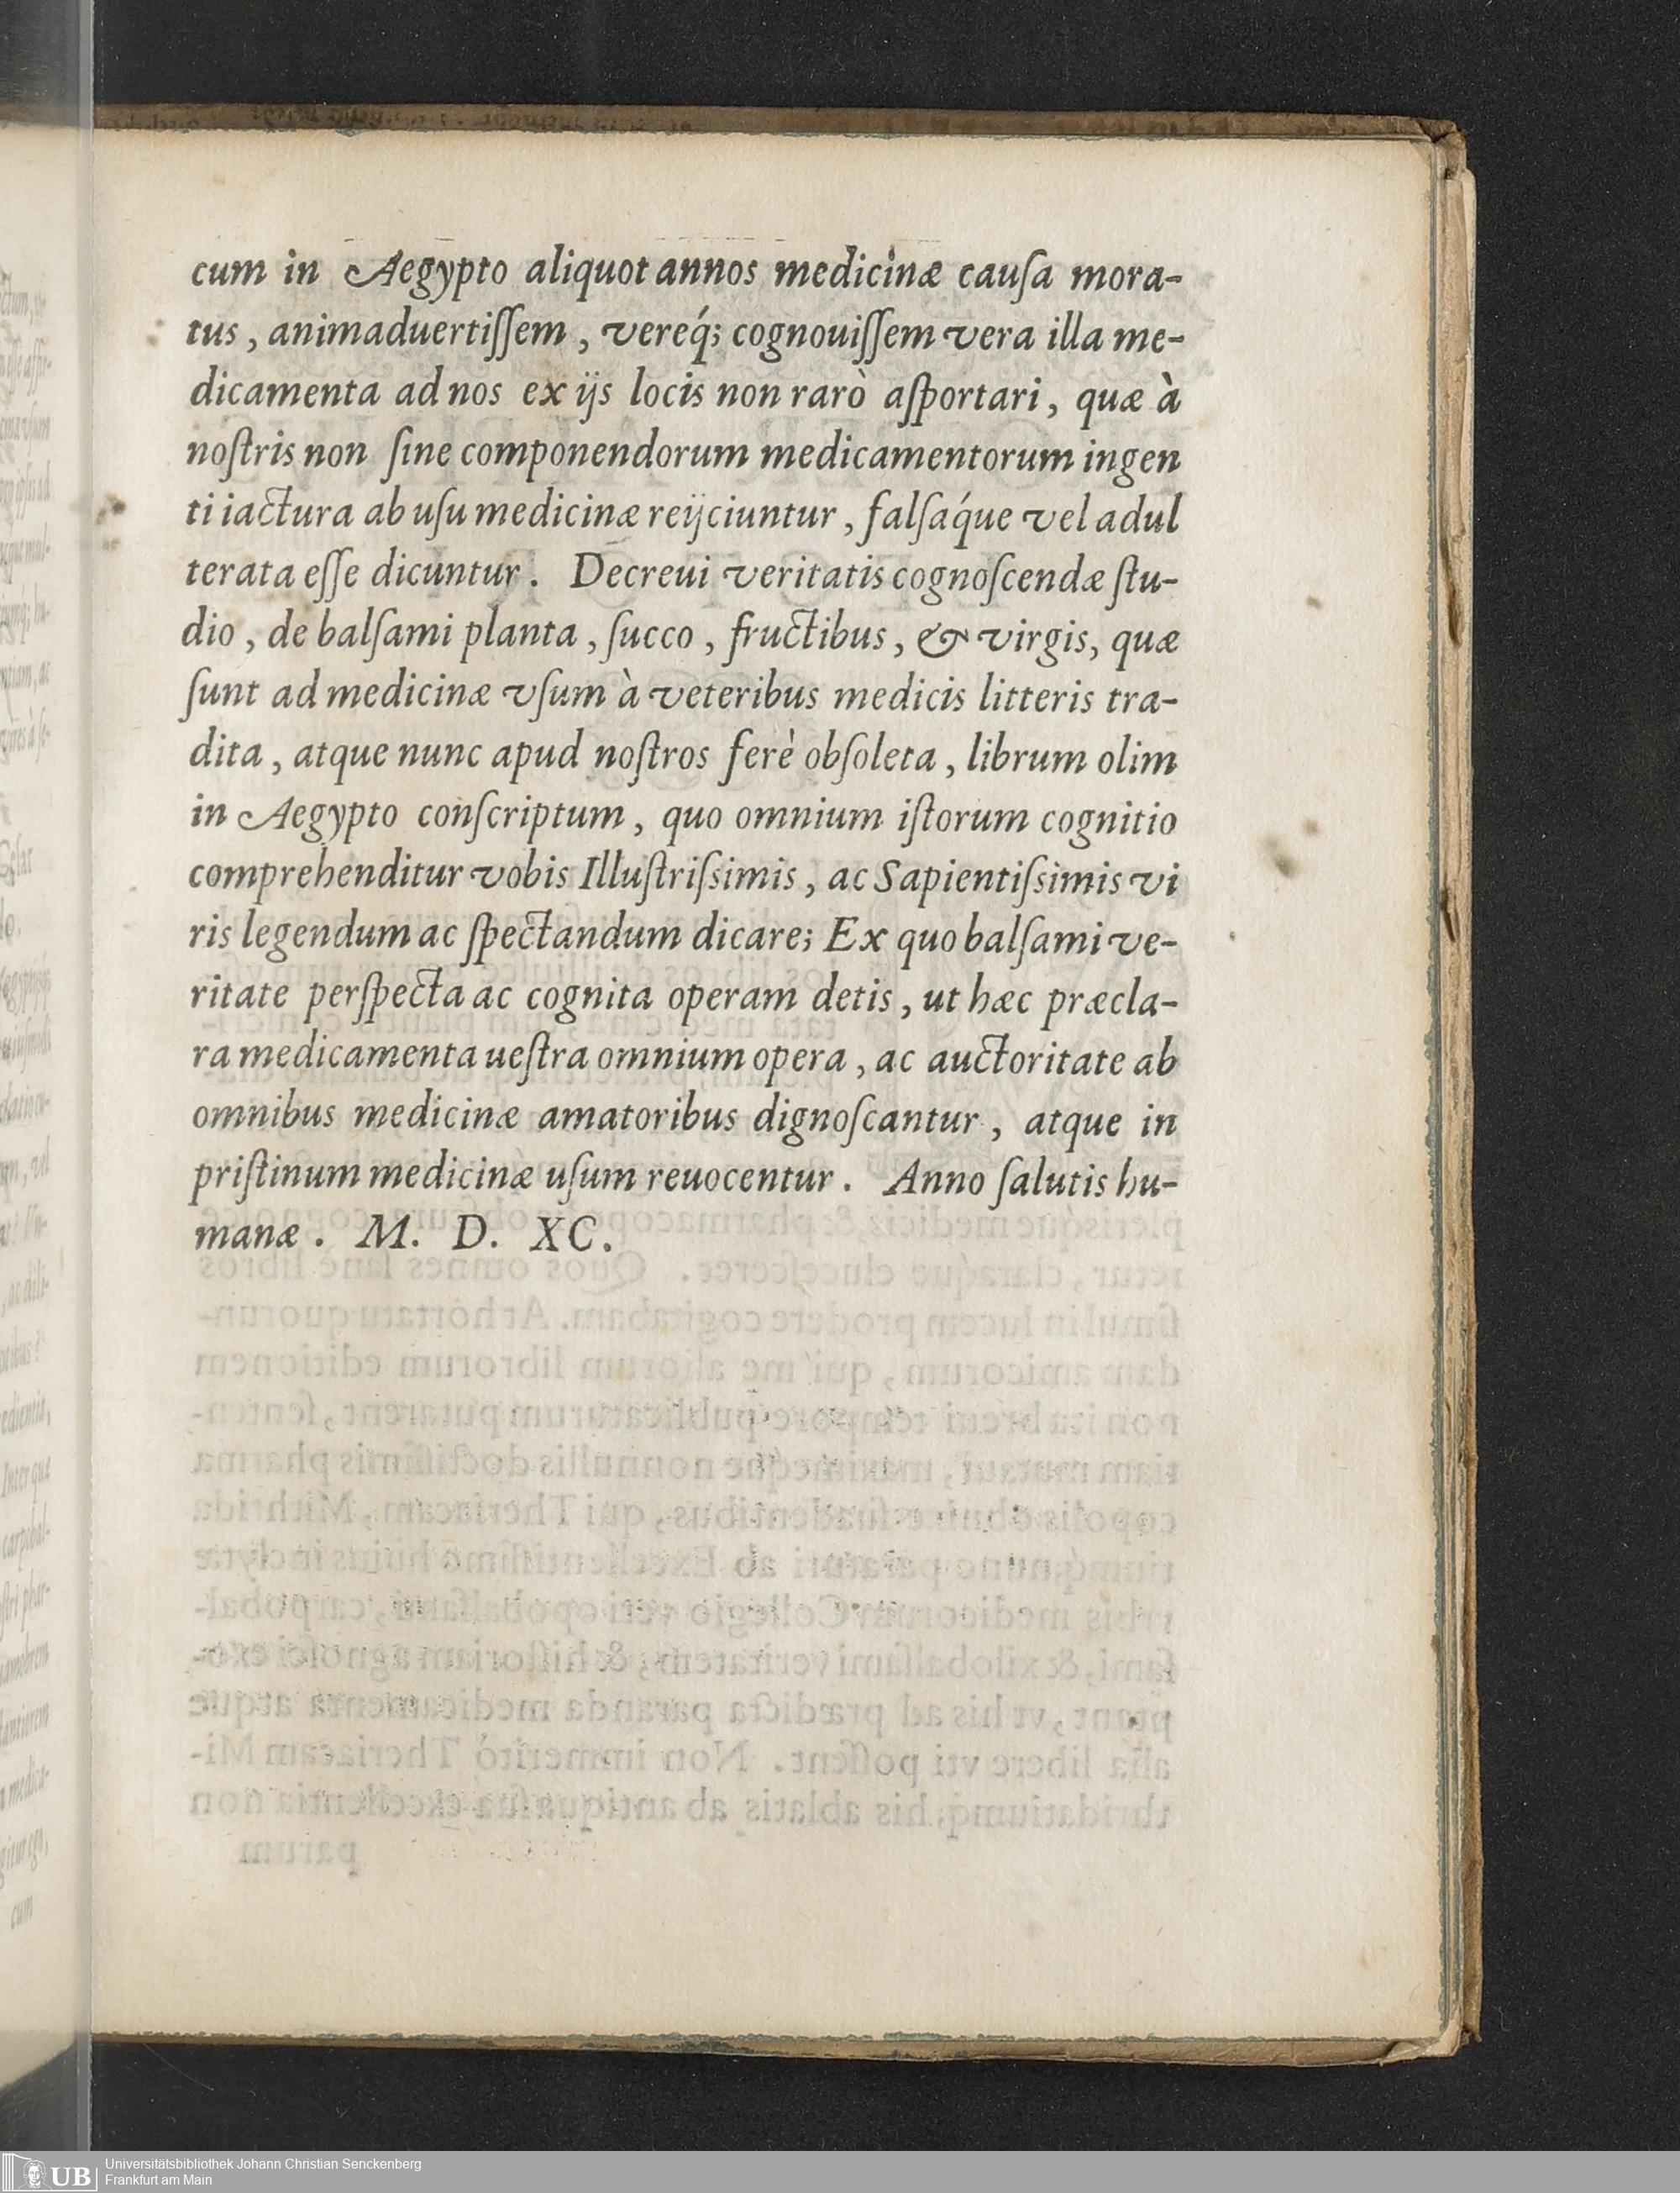 cum in Aegypto aliquot annos medicinæ cauſa mora-
tus, animaduertiſſem, vereq́; cognouiſſem vera illa me-
dicamenta ad nos ex ijs locis non rarò aſportari, quæ à
noſtris non ſine componendorum medicamentorum ingen
ti iactura ab uſu medicinæ reijciuntur, falſaq́ue vel adul
terata eſſe dicuntur. Decreui veritatis cognoſcendæ ſtu-
dio, de balſami planta, ſucco, fructibus, & virgis, quæ
ſunt ad medicinæ vſum à veteribus medicis litteris tra-
dita, atque nunc apud noſtros ferè obſoleta, librum olim
in Aegypto conſcriptum, quo omnium iſtorum cognitio
comprehenditur vobis Illuſtriſsimis, ac Sapientiſsimis vi
ris legendum ac ſpectandum dicare; Ex quo balſami ve-
ritate perſpecta ac cognita operam detis, ut hæc præcla-
ra medicamenta ueſtra omnium opera, ac auctoritate ab
omnibus medicinæ amatoribus dignoſcantur, atque in
priſtinum medicinæ uſum reuocentur. Anno ſalutis hu-
manæ. M. D. XC.
UB
Universitätsbibliothek Johann Christian Senckenberg
Frankfurt am Main